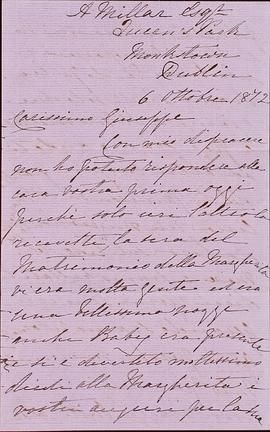 A Millar Esqr
Queen's Park
Monkstown
Dublin
6 Ottobre 1872
Carissimo Giuseppe
Con mio dispiacere
non ho potuto rispondere alla
cara vostra prima oggi
perchè solo ieri l'altro la
recevette, la sera del
Matrimonio della Margherita
vi era molta gente ed era
una bellissima nozze
anche Baby era presente
e si è divertito moltissimo
diedi alla Margherita i
vostri auguri per la sua